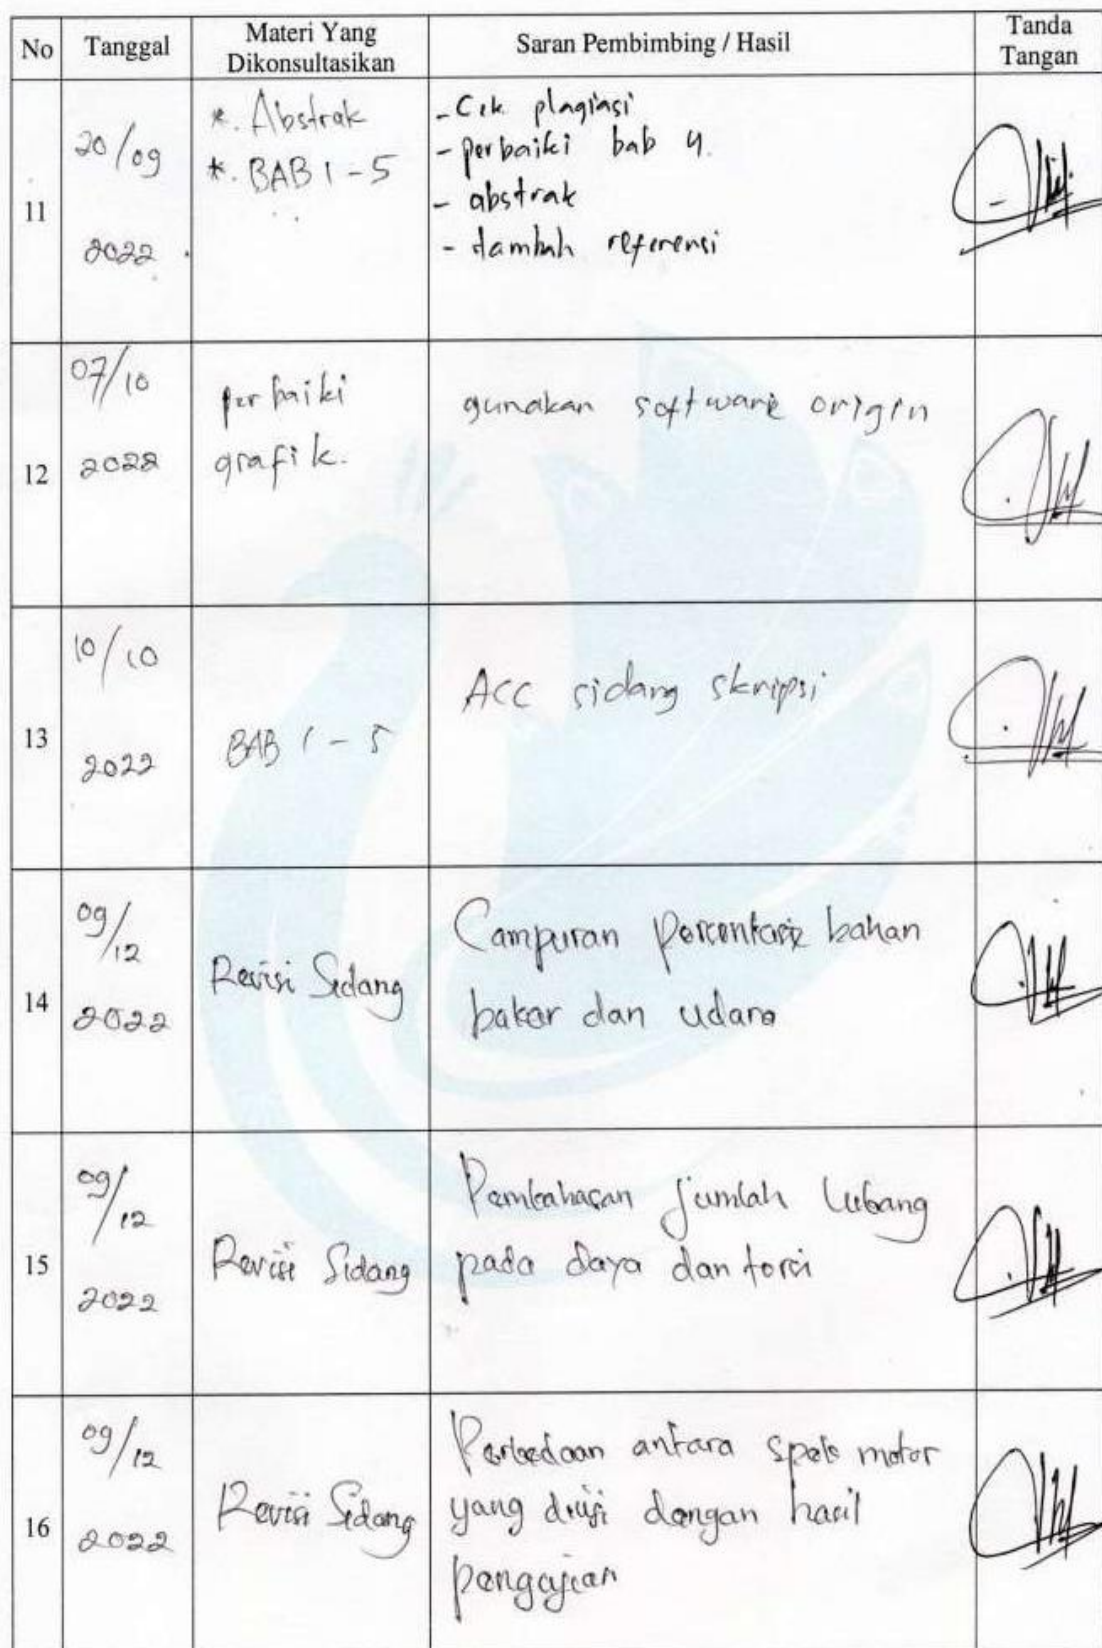 No Tanggal Materi Yang Dikonsultasikan Saran Pembimbing / Hasil Tanda Tangan
11
20/09
2022
*. Abstrak
*. BAB 1 - 5
- Cek plagiasi
- perbaiki bab 4.
- abstrak
- tambah referensi
12
07/10
2022
perbaiki
grafik.
gunakan software origin
13
10/10
2022
BAB 1 - 5
ACC sidang skripsi
14
09/12
2022
Revisi Sidang
Campuran persentase bahan
bakar dan udara
15
09/12
2022
Revisi Sidang
Pembahasan jumlah lubang
pada daya dan torsi
16
09/12
2022
Revisi Sidang
Perbedaan antara speks motor
yang diuji dengan hasil
pengujian